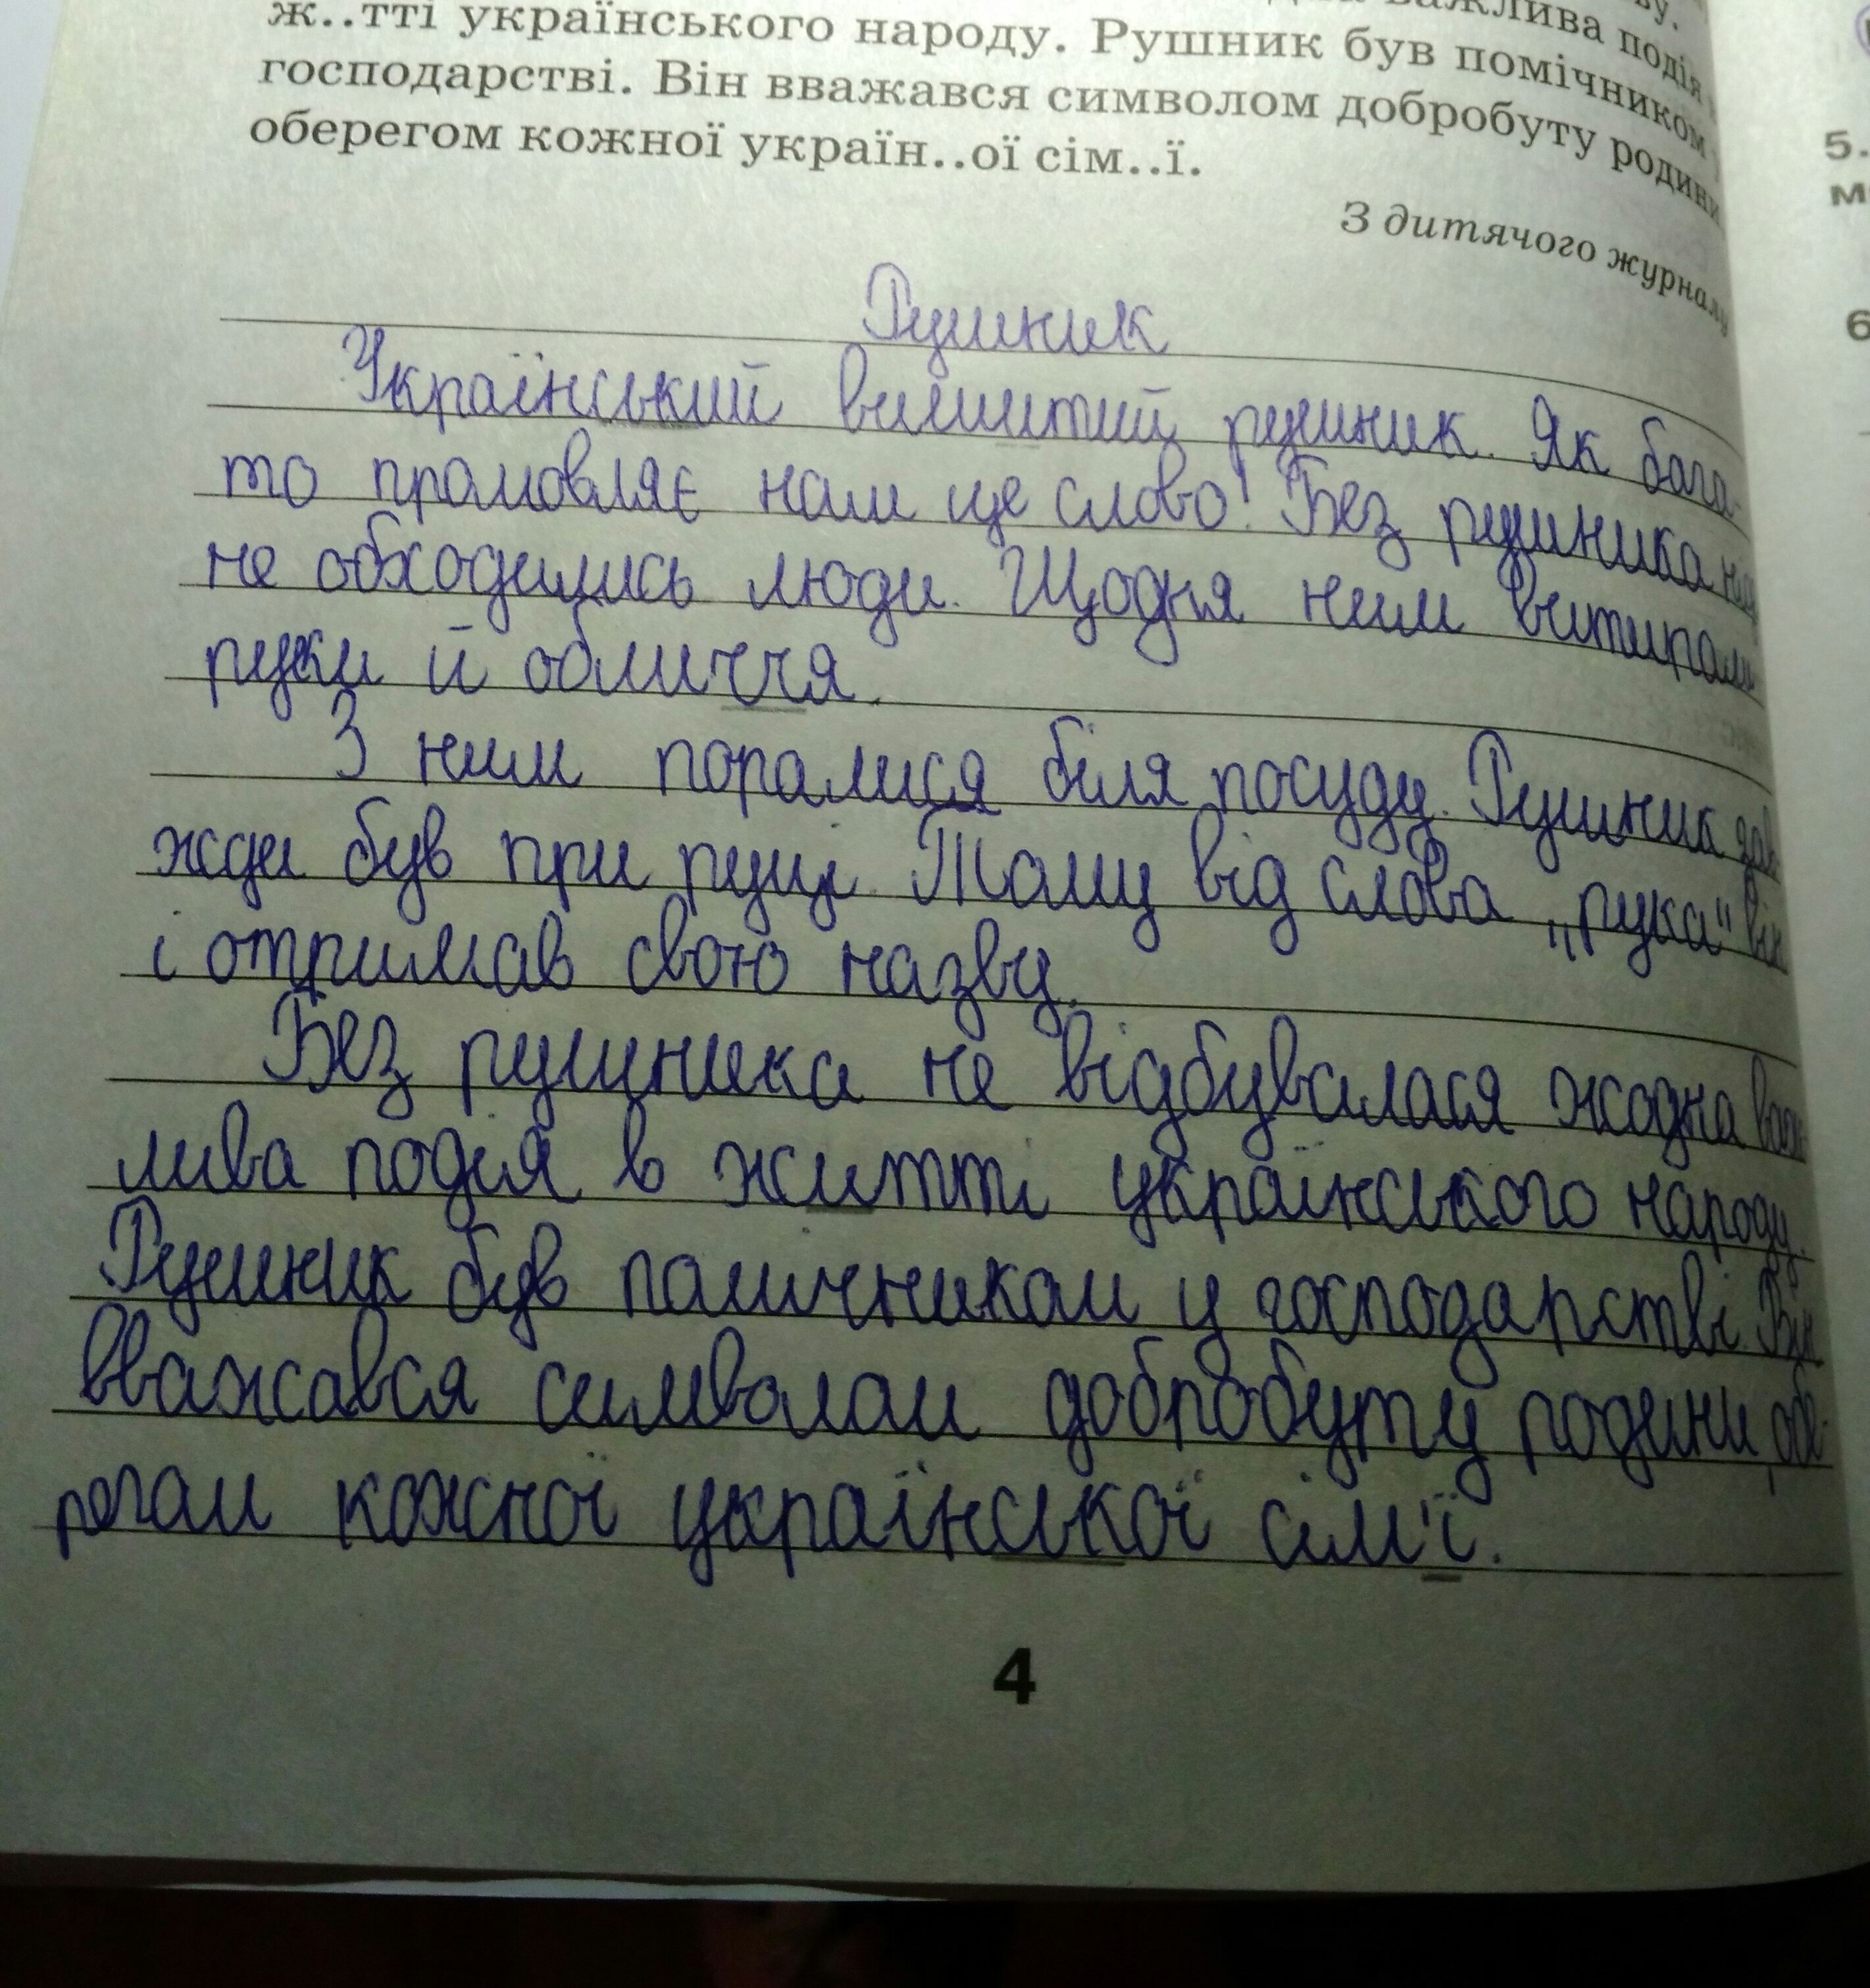 ву.
важлива подія
ж..тті українського народу. Рушник був помічником у
господарстві. Він вважався символом добробуту родини
оберегом кожної україн..ої сім..ї.
З дитячого журналу
5.
6
Рушник
Український вишитий рушник. Як бага-
то промовляє нам це слово! Без рушника
не обходились люди. Щодня ним витирали
руки й обличчя.
З ним поралися біля посуду. Рушник зав-
жди був при руці. Тому від слова „рука" він
і отримав свою назву.
Без рушника не відбувалася жодна важ-
лива подія в житті українського народу.
Рушник був помічником у господарстві. Він
вважався символом добробуту родини, обе-
регом кожної української сім'ї.
4